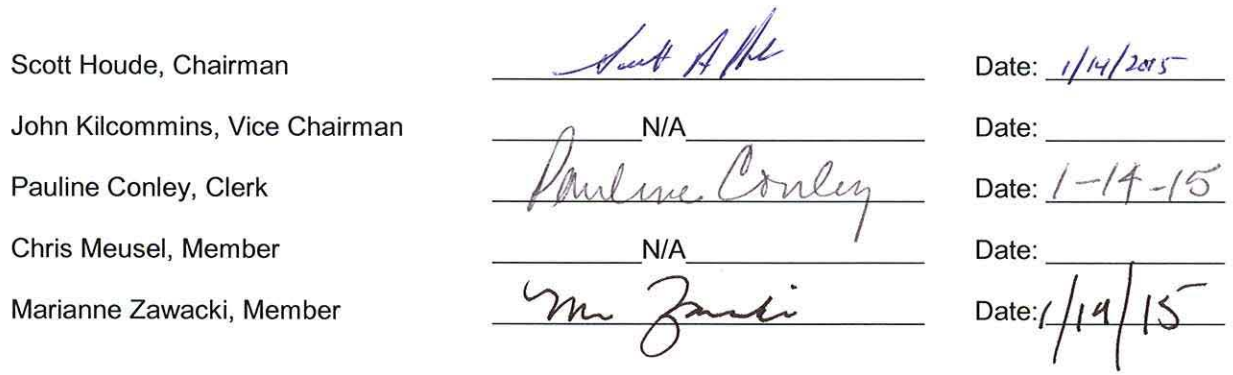 Scott Houde, Chairman Scott A Hde Date: 1/14/2015
John Kilcommins, Vice Chairman N/A Date:
Pauline Conley, Clerk Pauline Conley Date: 1-14-15
Chris Meusel, Member N/A Date:
Marianne Zawacki, Member M Zawacki Date: 1/14/15